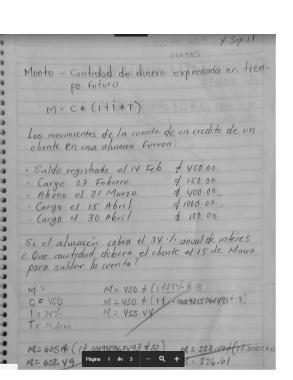 4-Sep-18
Monto - Cantidad de dinero expresada en tiem-
po futuro
M = C * (1+i*T)
Los movimientos de la cuenta de un credito de un
cliente en una almacen fueron:
- Saldo registrado el 14 Feb $ 450.00
- Cargo 27 Febrero $ 150.00
- Abono el 21 Marzo $ 400.00
- Cargo el 15 Abril $ 1000.00
- Cargo el 30 Abril $ 100.00
Si el almacen cobra el 34 % anual de interés
¿ Que cantidad debera el cliente el 15 de Mayo
para saldar la cuenta?
M =
C = 450
M = 455.44
Página 1 de 2
M = 622.49